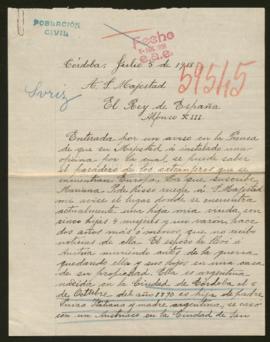 POBLACIÓN
CIVIL
Fecha
59545
Córdoba, Julio 5 de 1918
A. S. Majestad
El Rey de España
Alfonso XIII.
Enterada por un aviso en la Prensa
de que su Majestad á instalado una
oficina por la cual se puede saber
el paradero de los extranjeros que se
encuentran Europa. La que suscribe
Mariana P. de Rosso ruega á S. Majestad
me avise el lugar donde se encuentra
actualmente una hija mia viuda con
cinco hijos 4 mujeres y un varon hace
dos años más ó menos que no recibo
noticias de ella. El esposo la llevó á
Austria muriendo antes de la guerra
quedando ella y sus hijos en una casa
de su propiedad. Ella es argentina
nacida en la Ciudad de Córdoba el
de Octubre del año 1890 es hija de padre
Suizo Italiano y madre argentina, se casó
con un Austriaco en la Ciudad de San